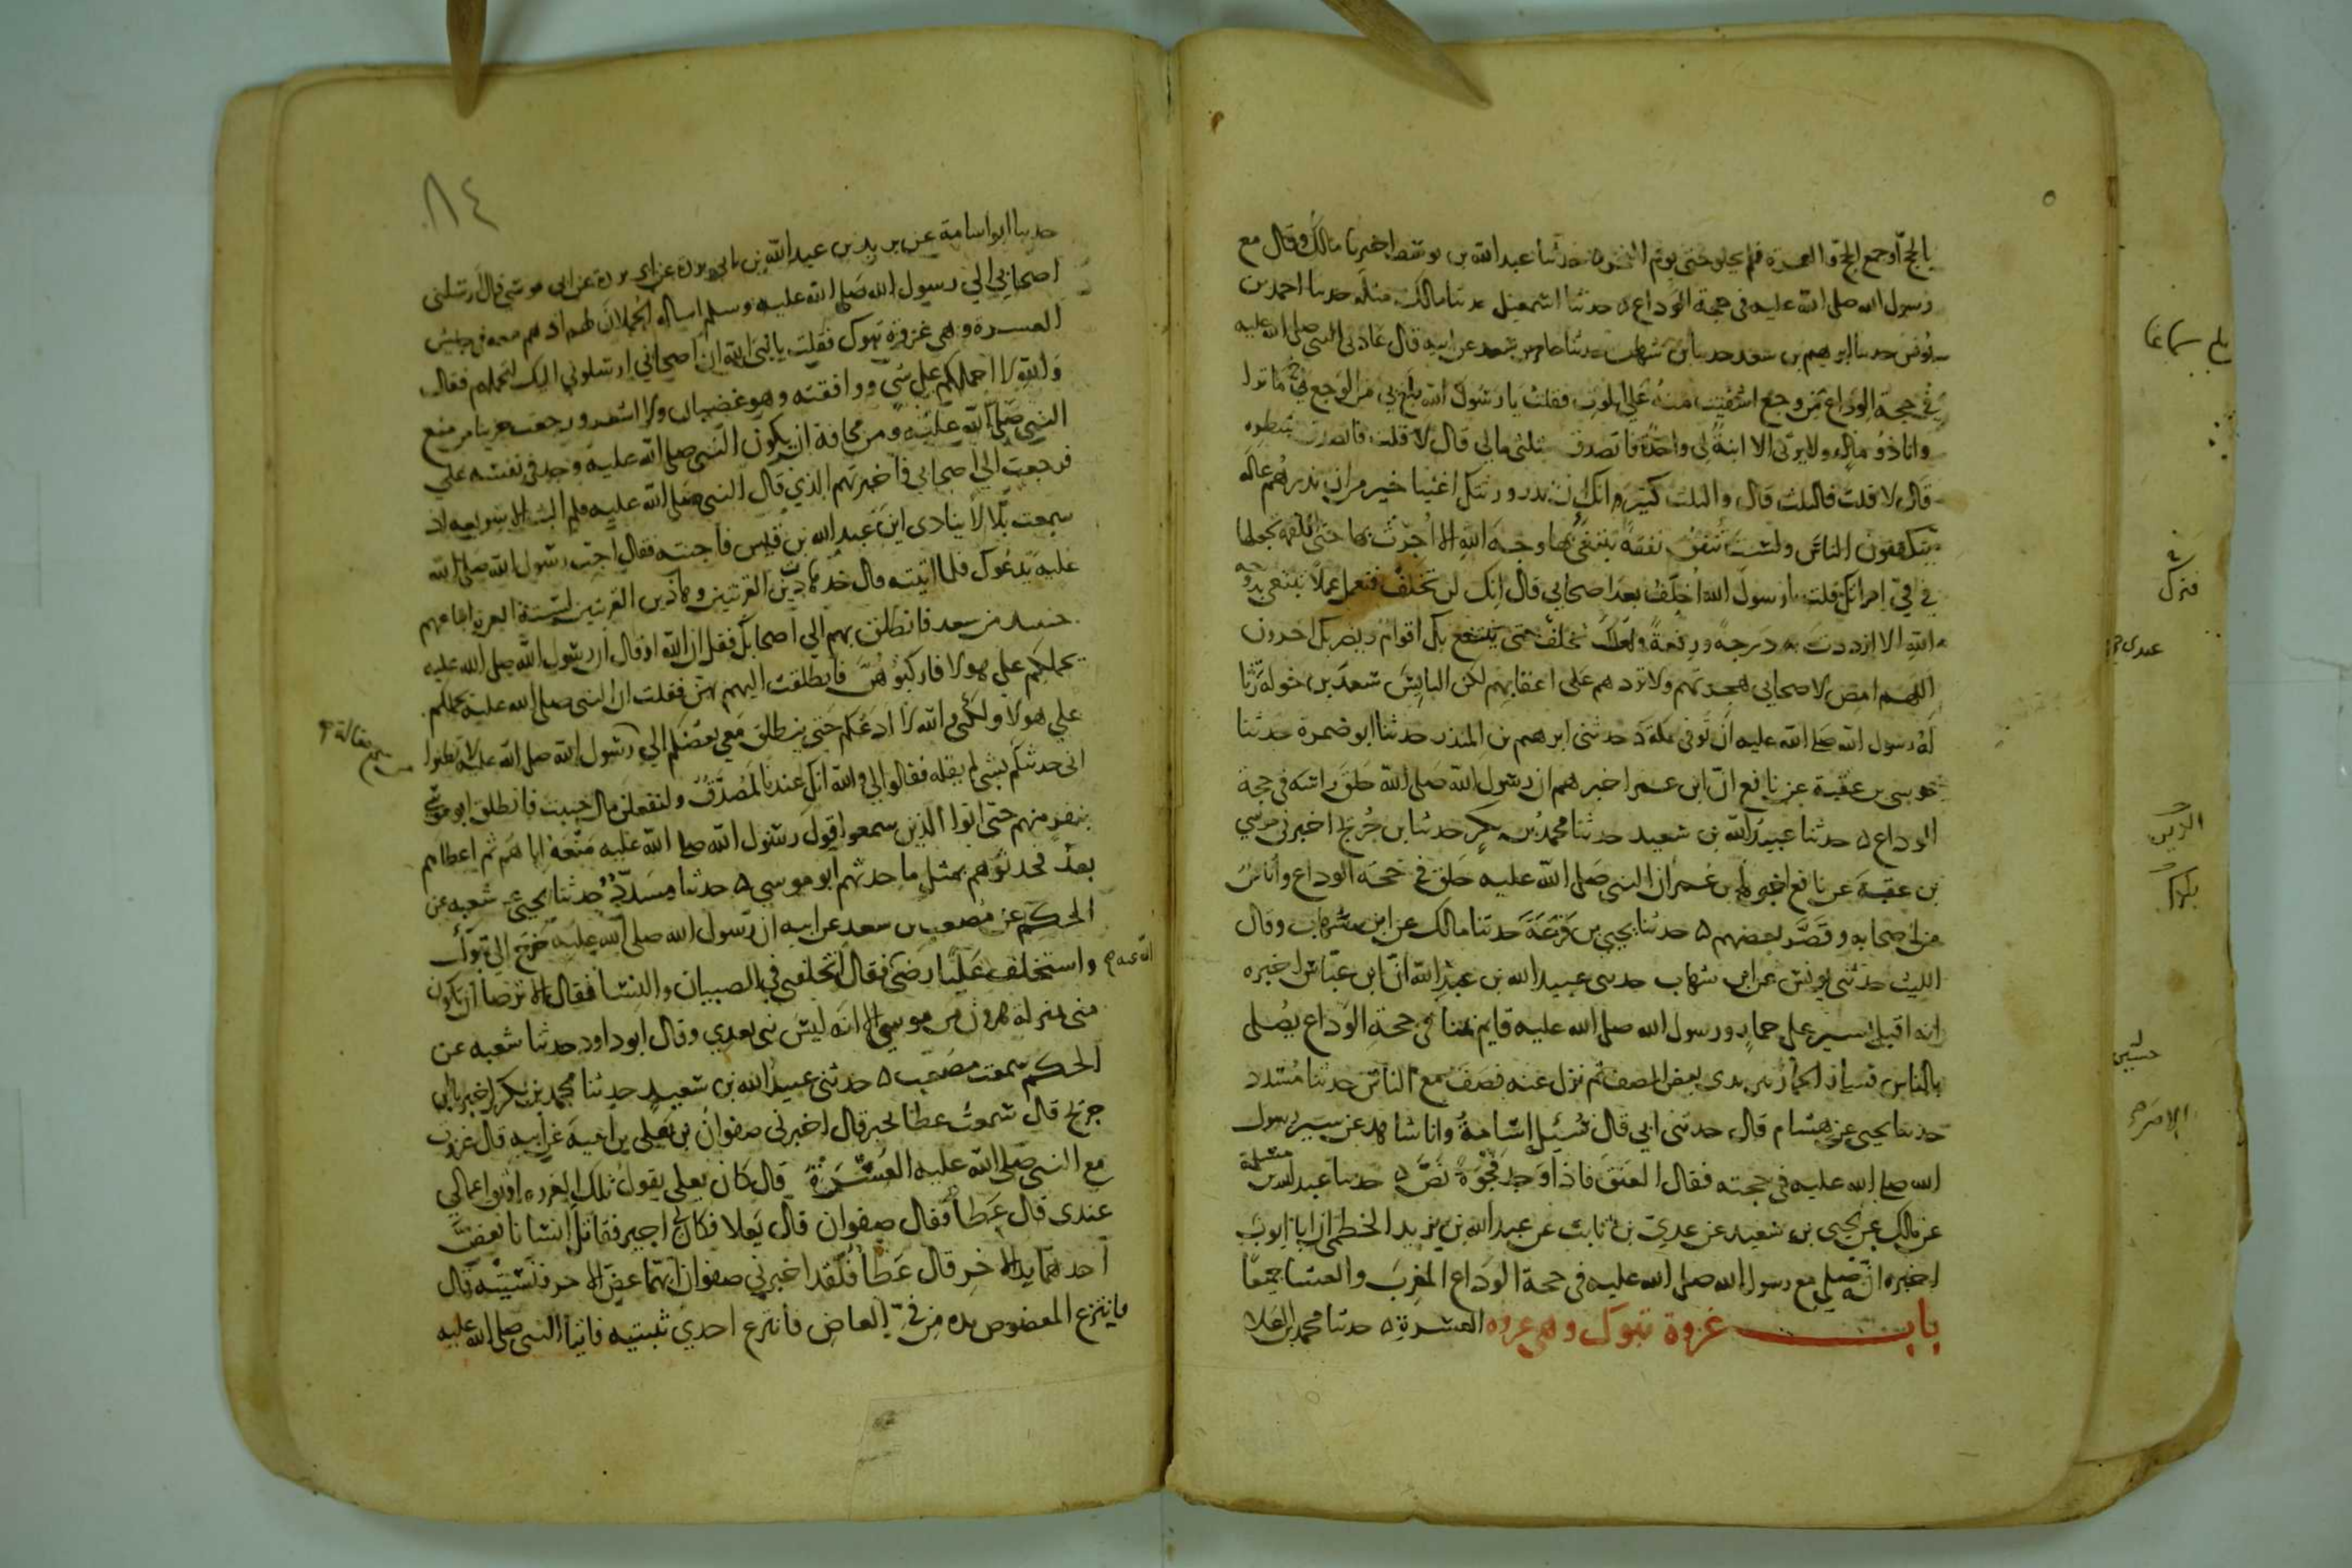 بالحج أو جمع الحج والعمرة فلم يحلوا حتى يوم النحر ٥ حدثنا عبد الله بن يوسف اخبرنا مالك وقال مع
رسول الله صلى الله عليه في حجة الوداع ٥ حدثنا اسمعيل حدثنا مالك مثله حدثنا احمد بن
يونس حدثنا ابرهيم بن سعد حدثنا بن شهاب عن عامر بن سعد عن ابيه قال عادني النبي صلى الله عليه
في حجة الوداع من وجع اشفيت منه على الموت فقلت يا رسول الله بلغ بي من الوجع ما ترا
وانا ذو مال ولا يرثني الا ابنة لي واحدة فاتصدق بثلثي مالي قال لا قلت فاتصدق بشطره
قال لا قلت فالثلث قال والثلث كثير وانك ان تذر ورثتك اغنيا خير من ان تذرهم عالة
يتكففون الناس ولست تنفق نفقة تبتغي بها وجه الله الا اجرت بها حتى اللقمة تجعلها
في في امراتك قلت يا رسول الله أخلف بعد اصحابي قال انك لن تخلف فتعمل عملا تبتغي به وجه
الله الا ازددت به درجة ورفعة ولعلك تخلف حتى ينتفع بك أقوام ويضر بك اخرون
اللهم امض لاصحابي هجرتهم ولا تردهم على اعقابهم لكن البايس سعد بن خولة رثا
له رسول الله صلى الله عليه ان توفي بمكة ٥ حدثني ابرهيم بن المنذر حدثنا ابو ضمرة حدثنا
موسى بن عقبة عن نافع ان ابن عمر اخبرهم ان رسول الله صلى الله حلق راسه في حجة
الوداع ٥ حدثنا عبيد الله بن سعيد حدثنا محمد بن بكر حدثنا بن جريج اخبرني موسى
بن عقبة عن نافع اخبره بن عمر ان النبي صلى الله عليه حلق في حجة الوداع وأناس
من اصحابه وقصر بعضهم ٥ حدثنا يحيى بن قزعة حدثنا مالك عن ابن شهاب وقال
الليث حدثني يونس عن ابن شهاب حدثني عبيد الله بن عبد الله ان ابن عباس اخبره
انه اقبل يسير على حمار ورسول الله صلى الله عليه قايم بمنا في حجة الوداع يصلي
بالناس فسار الحمار بين يدي بعض الصف ثم نزل عنه فصف مع الناس حدثنا مسدد
حدثنا يحيى عن هشام قال حدثني ابي قال سئل اسامة وانا شاهد عن سير رسول
الله صلى الله عليه في حجته فقال العنق فاذا وجد فجوة نص ٥ حدثنا عبد الله بن مسلمة
عن مالك عن يحيى بن سعيد عن عدي بن ثابت عن عبد الله بن يزيد الخطمي ان ابا ايوب
اخبره انه صلى مع رسول الله صلى الله عليه في حجة الوداع المغرب والعشا جميعا
باب غزوة تبوك وهي غزوة العسرة ٥ حدثنا محمد بن العلا
٨٤
حدثنا ابو اسامة عن بريد بن عبد الله بن ابي بردة عن ابي بردة عن ابي موسى قال ارسلني
اصحابي الي رسول الله صلى الله عليه وسلم اساله الحملان لهم اذ هم معه في جيش
العسرة وهي غزوة تبوك فقلت يا نبي الله ان اصحابي ارسلوني اليك لتحملهم فقال
والله لا احملكم على شي ووافقته وهو غضبان ولا اشعر ورجعت حزينا من منع
النبي صلى الله عليه ومن مخافة ان يكون النبي صلى الله عليه وجد في نفسه علي
فرجعت الي اصحابي فاخبرتهم الذي قال النبي صلى الله عليه فلم البث الا سويعة اذ
سمعت بلالا ينادي اين عبد الله بن قيس فاجبته فقال اجب رسول الله صلى الله
عليه يدعوك فلما اتيته قال خذ هاذين القرنتين وهاذين القرنتين لستة ابعرة ابتاعهم
حينيذ من سعد فانطلق بهم الي اصحابك فقل ان الله او قال ان رسول الله صلى الله عليه
يحملكم على هولا فاركبوهن فانطلقت اليهم بهن فقلت ان النبي صلى الله عليه يحملكم
على هولا ولكني والله لا ادعكم حتى ينطلق معي بعضكم الي من سمع مقالة رسول الله صلى الله عليه لا تظنوا
اني حدثتكم بشي لم يقله فقالوا لي والله انك عندنا لمصدق ولنفعلن ما احببت فانطلق ابو موسى
بنفر منهم حتى اتوا الذين سمعوا قول رسول الله صلى الله عليه منعه اياهم ثم اعطاهم
بعد فحدثوهم بمثل ما حدثهم ابو موسي ٥ حدثنا مسدد حدثنا يحيى عن شعبه عن
الحكم عن مصعب بن سعد عن ابيه ان رسول الله صلى الله عليه خرج الى تبوك
واستخلف عليا رضي الله عنه فقال اتخلفني في الصبيان والنسا فقال الا ترضا ان تكون
مني بمنزلة هرون من موسي الا انه ليس نبي بعدي وقال ابو داود حدثنا شعبه عن
الحكم سمعت مصعب ٥ حدثني عبيد الله بن سعيد حدثنا محمد بن بكر اخبرنا بن
جريج قال سمعت عطا يخبر قال اخبرني صفوان بن يعلى بن امية عن ابيه قال غزوت
مع النبي صلى الله عليه العسرة قال كان يعلى يقول تلك الغزوة اوثق اعمالي
عندي قال عطا فقال صفوان قال يعلا فكان لي اجير فقاتل انسانا فعض
احدهما يد الاخر قال عطا فلقد اخبرني صفوان ايهما عض الاخر فنسيته قال
فانتزع المعضوض يده من في العاض فانتزع احدي ثنيتيه فاتيا النبي صلى الله عليه